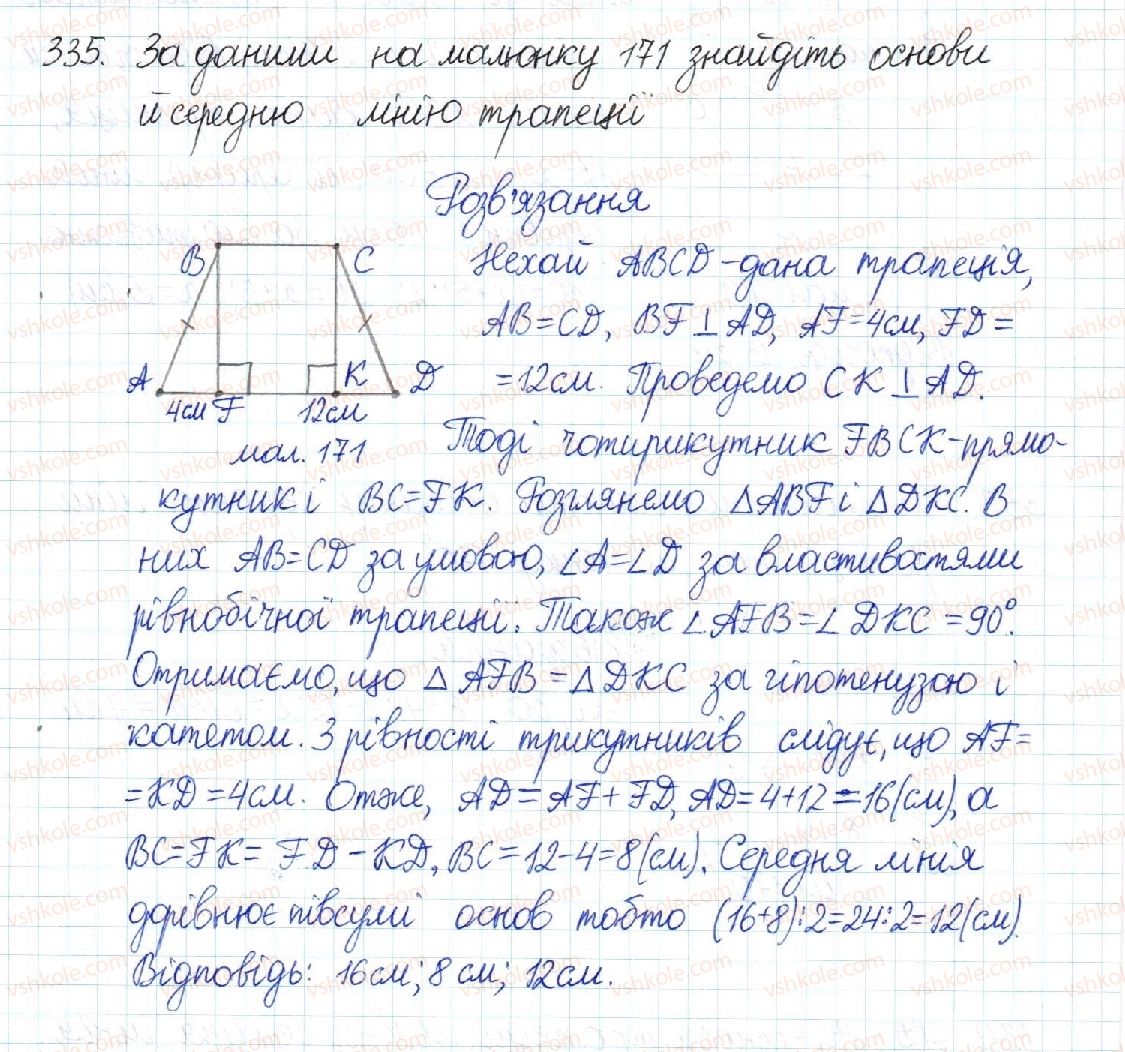 335. За даними на малюнку 171 знайдіть основи
й середню лінію трапеції
Розв'язання
B C
A 4см F 12см K D
мал. 171
Нехай ABCD - дана трапеція,
AB=CD, BF⊥AD, AF=4см, FD=
=12см. Проведемо CK⊥AD.
Тоді чотирикутник FBCK-прямо-
кутник і BC=FK. Розглянемо △ABF і △DKC. В
них AB=CD за умовою, ∠A=∠D за властивостями
рівнобічної трапеції. Також ∠AFB=∠DKC=90°.
Отримаємо, що △AFB=△DKC за гіпотенузою і
катетом. З рівності трикутників слідує, що AF=
=KD=4см. Отже, AD=AF+FD, AD=4+12=16(см), а
BC=FK=FD-KD, BC=12-4=8(см). Середня лінія
дорівнює півсумі основ тобто (16+8):2=24:2=12(см).
Відповідь: 16см; 8см; 12см.